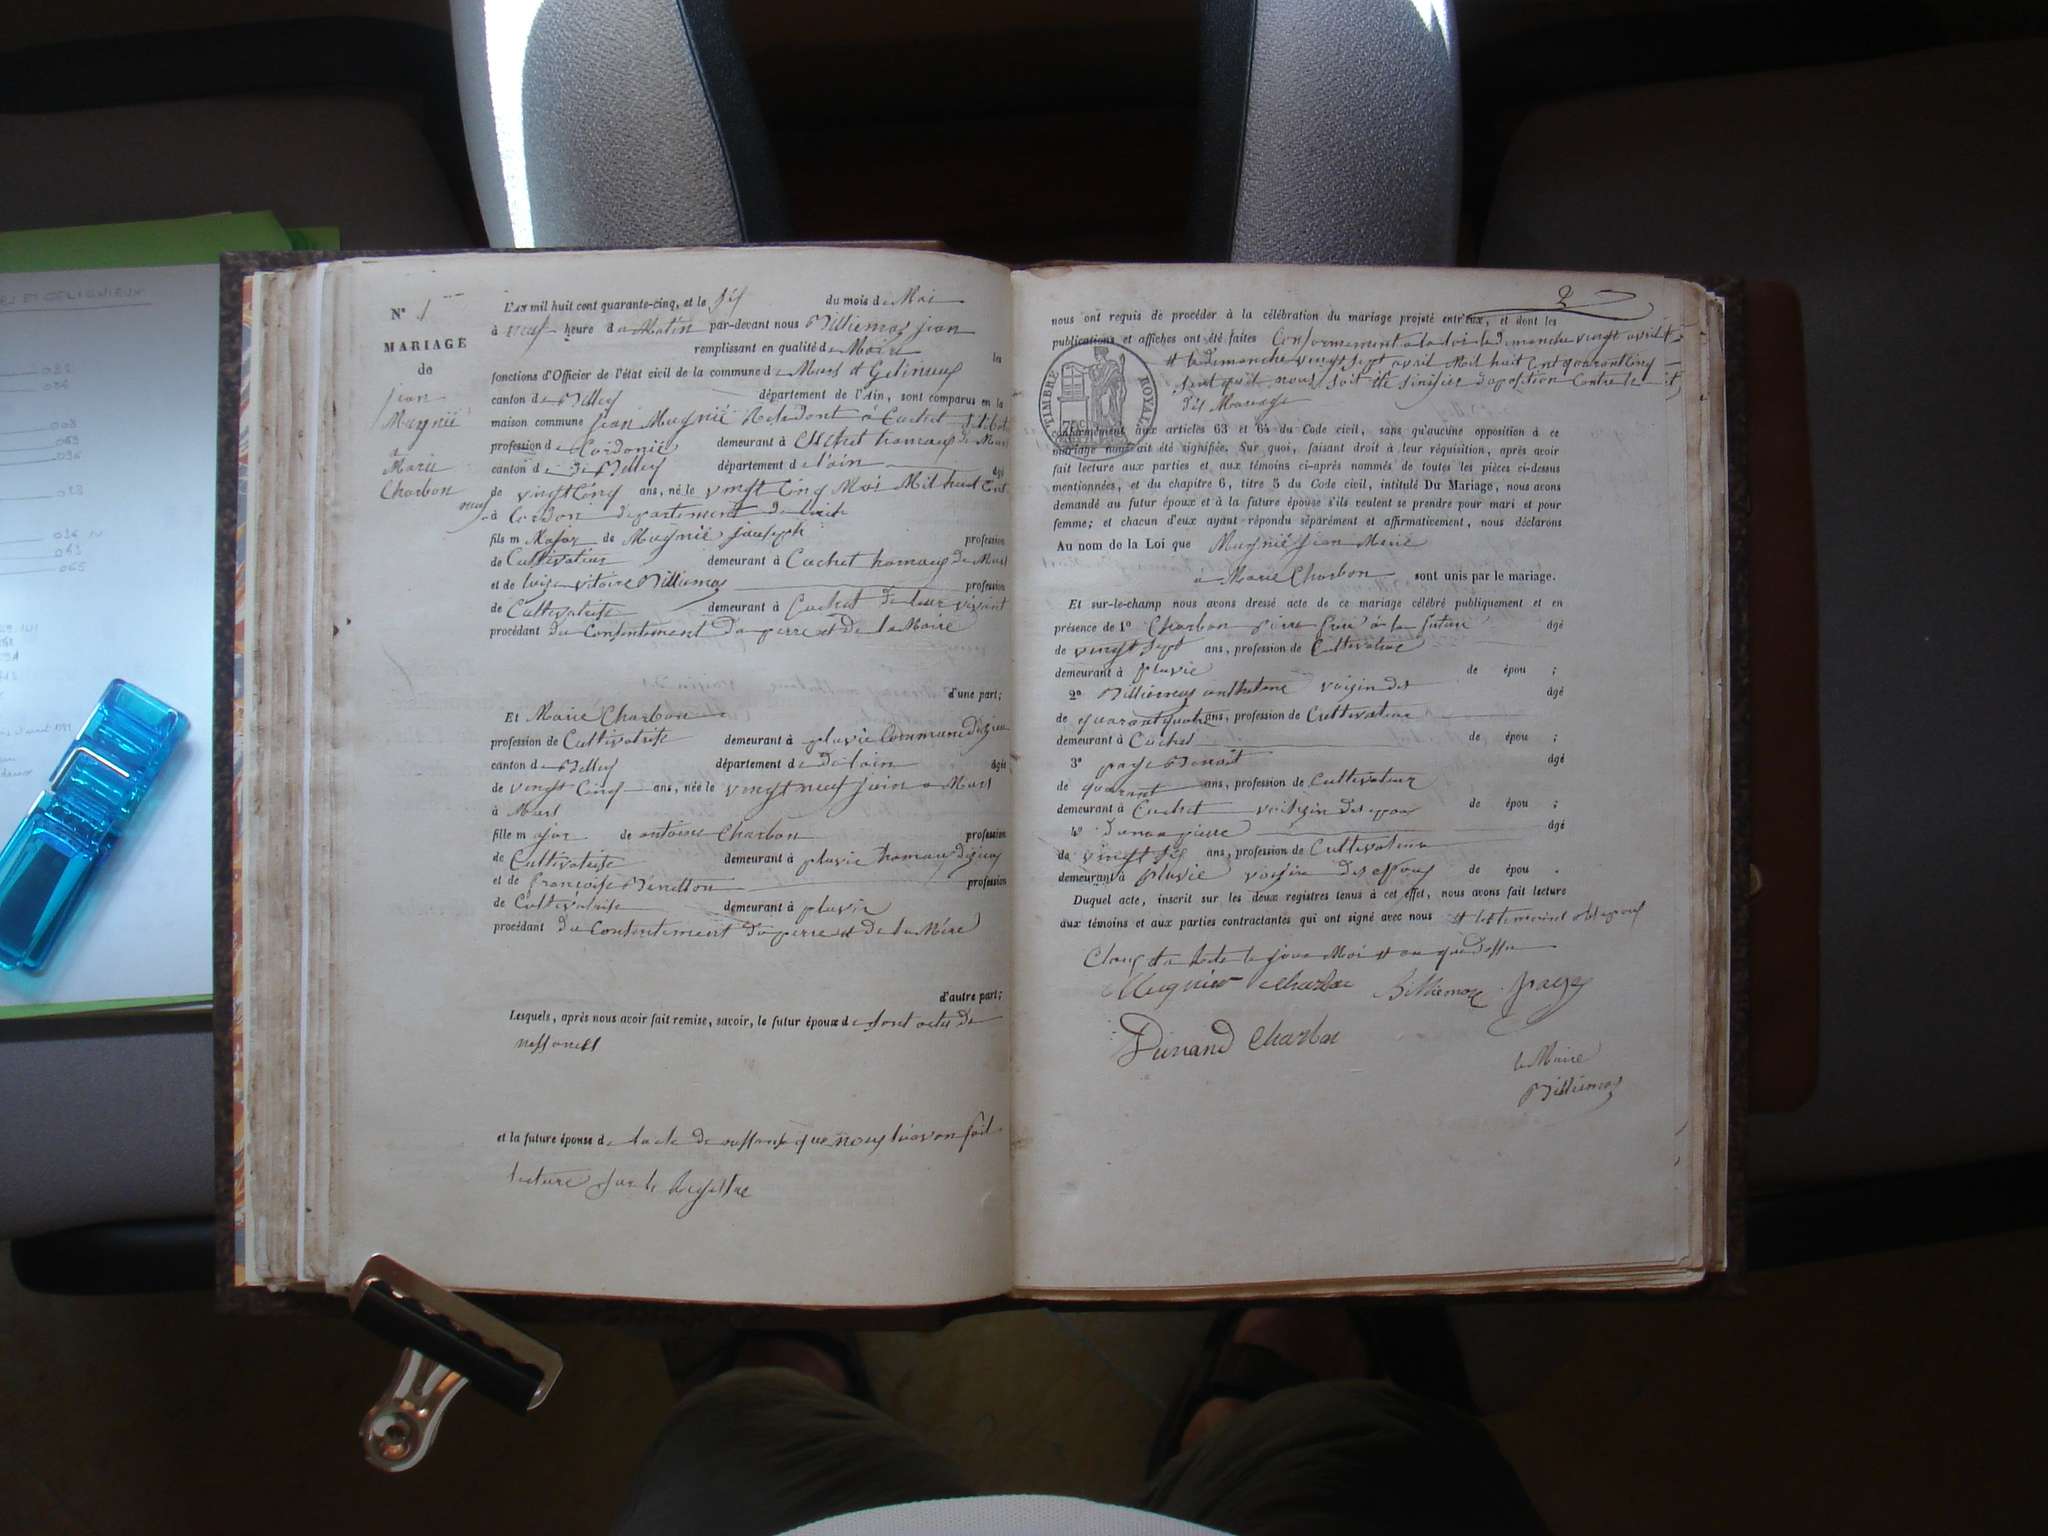 N° 1
MARIAGE
de
jean
Mugnié
a
Marie
Charbon
L'AN mil huit cent quarante-cinq, et le six du mois de Mai
à neuf heure du Matin par-devant nous Billiemaz jean
remplissant en qualité de Maire les
fonctions d'Officier de l'état civil de la commune de Murs et Gelinieux
canton de Belley département de l'Ain, sont comparus en la
maison commune jean Mugnié Residant à Cuchet
profession de Cordonié demeurant à Cuchet hameau de Murs
canton de de Belley département de l'ain âgé
de vingt Cinq ans, né le vingt Cinq Mai Mil huit Cent
à Cordon departement de
fils m Major de Mugnié jauseph profession
de Cultivateur demeurant à Cuchet hameau de Murs
et de Billiemaz profession
de Cultivatrise demeurant à Cuchet de leur vivant
procédant du Consentement du perre et de la Maire
d'une part;
Et Marie Charbon
profession de Cultivatrise demeurant à pluvie Commune Dizieu
canton de Belley département de De lain âgée
de vingt Cinq ans, née le vingt neuf juin a Murs
à Murs
fille m ajor de antoine Charbon profession
de Cultivatrise demeurant à pluvie hameau Dizieu
et de françoise profession
de Cultivatrise demeurant à pluvie
procédant du Consentement du perre et de la Mére
d'autre part;
Lesquels, après nous avoir fait remise, savoir, le futur époux de sont actes de
nessances
et la future épouse de lacte de nessance que nous luiavon fait
lecture sur le Registre
2
nous ont requis de procéder à la célébration du mariage projeté entr'eux, et dont les
publications et affiches ont été faites Conformement a la loi le dimanche vingt avril
et le demanche vingt sept avril Mil huit Cent quarantCinq
sent quil nous soit été sinifiée doposition Contre le
dit Mariage
TIMBRE ROYAL
conformément aux articles 63 et 64 du Code civil, sans qu'aucune opposition à ce
mariage nous ait été signifiée. Sur quoi, faisant droit à leur réquisition, après avoir
fait lecture aux parties et aux témoins ci-après nommés de toutes les pièces ci-dessus
mentionnées, et du chapitre 6, titre 5 du Code civil, intitulé Du Mariage, nous avons
demandé au futur époux et à la future épouse s'ils veulent se prendre pour mari et pour
femme; et chacun d'eux ayant répondu séparément et affirmativement, nous déclarons
Au nom de la Loi que Mugnié jean Marie
à Marie Charbon sont unis par le mariage.
Et sur-le-champ nous avons dressé acte de ce mariage célébré publiquement et en
présence de 1° Charbon pierre frere à la future âgé
de vingt sept ans, profession de Cultivateur
demeurant à pluvie de épou ;
2° Billiemaz anthelme voisin des âgé
de quarantquatre ans, profession de Cultivateur
demeurant à Cuchet de épou ;
3° paye Benoit âgé
de quarant ans, profession de Cultivateur
demeurant à Cuchet voisin des epoux de épou ;
4° Duran pierre âgé
de vingt six ans, profession de Cultivateur
demeurant à pluvie voisin des epoux de épou .
Duquel acte, inscrit sur les deux registres tenus à cet effet, nous avons fait lecture
aux témoins et aux parties contractantes qui ont signé avec nous et les temoins
Clang et a Acte le jour Moi et an que dessu
Mugnier Charbon Billiemaz paye
Durand Charbon
le Maire
Billiemaz